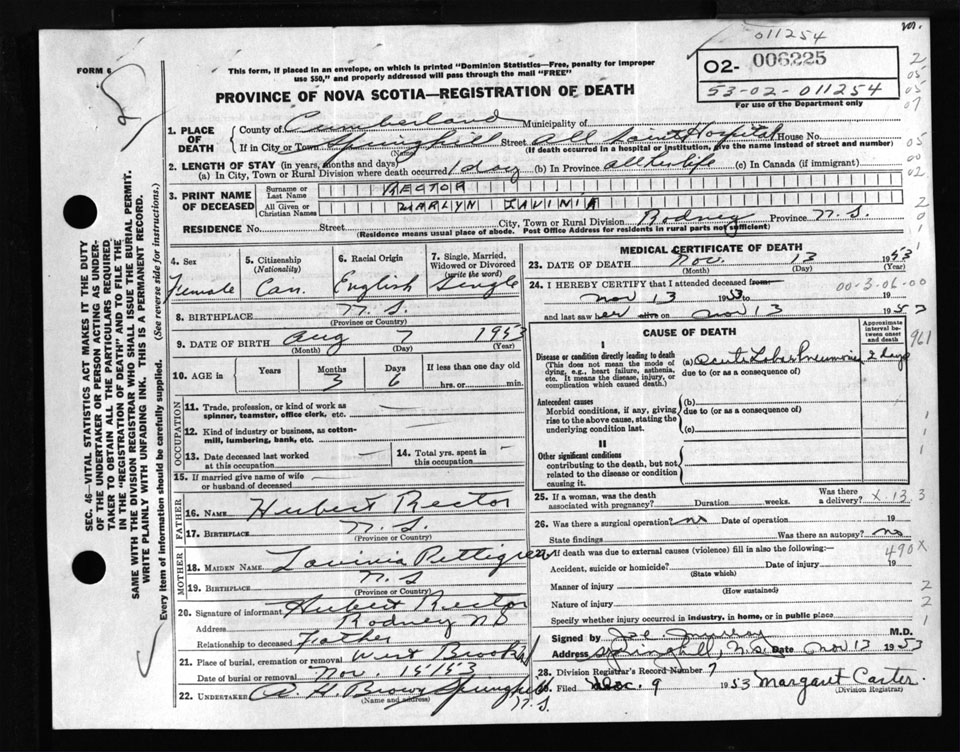 011254
FORM 6
This form, if placed in an envelope, on which is printed "Dominion Statistics—Free, penalty for improper
use $50," and properly addressed will pass through the mail "FREE"
O2- 006225
53-02-011254
For use by the Department only
PROVINCE OF NOVA SCOTIA—REGISTRATION OF DEATH
1. PLACE OF DEATH
County of Cumberland Municipality of
If in City or Town Springhill Street All Saints Hospital House No.
(Name) (If death occurred in a hospital or institution, give the name instead of street and number)
2. LENGTH OF STAY (in years, months and days)
(a) In City, Town or Rural Division where death occurred 1 day (b) In Province all her life (c) In Canada (if immigrant)
3. PRINT NAME OF DECEASED
Surname or Last Name RECTOR
All Given or Christian Names MARLYN LAVINIA
RESIDENCE No. Street City, Town or Rural Division Rodney Province N.S.
(Residence means usual place of abode. Post Office Address for residents in rural parts not sufficient)
4. Sex Female
5. Citizenship (Nationality) Can.
6. Racial Origin English
7. Single, Married, Widowed or Divorced (write the word) Single
8. BIRTHPLACE N.S.
(Province or Country)
9. DATE OF BIRTH Aug 7 1953
(Month) (Day) (Year)
10. AGE in Years Months 3 Days 6 If less than one day old
hrs. or min.
OCCUPATION
11. Trade, profession, or kind of work as spinner, teamster, office clerk, etc. —
12. Kind of industry or business, as cotton-mill, lumbering, bank, etc. —
13. Date deceased last worked at this occupation — 14. Total yrs. spent in this occupation —
15. If married give name of wife or husband of deceased —
FATHER
16. NAME Hubert Rector
17. BIRTHPLACE N.S.
(Province or Country)
MOTHER
18. MAIDEN NAME Lavinia Pettigrew
19. BIRTHPLACE N.S
(Province or Country)
20. Signature of informant Hubert Rector
Address Rodney NS
Relationship to deceased Father
21. Place of burial, cremation or removal West Brook
Date of burial or removal Nov. 15 1953
22. UNDERTAKER A. H. Brown Springhill
(Name and address) N.S.
MEDICAL CERTIFICATE OF DEATH
23. DATE OF DEATH Nov. 13 1953
(Month) (Day) (Year)
24. I HEREBY CERTIFY that I attended deceased from
Nov 13 1953 00-3-06-00
and last saw her alive on Nov 13 1953
CAUSE OF DEATH
Approximate interval between onset and death
961
I
Disease or condition directly leading to death (a) Acute Lobar Pneumonia 2 days
(This does not mean the mode of dying, e.g., heart failure, asthenia, etc. It means the disease, injury, or complication which caused death.)
due to (or as a consequence of)
Antecedent causes (b)
Morbid conditions, if any, giving rise to the above cause, stating the underlying condition last.
due to (or as a consequence of)
(c)
II
Other significant conditions
contributing to the death, but not related to the disease or condition causing it.
25. If a woman, was the death associated with pregnancy? Duration weeks. Was there a delivery? X.13.3
26. Was there a surgical operation? no Date of operation 19
State findings Was there an autopsy? no
If death was due to external causes (violence) fill in also the following:— 490X
Accident, suicide or homicide? Date of injury 19
(State which)
Manner of injury
(How sustained)
Nature of injury
Specify whether injury occurred in industry, in home, or in public place
Signed by M.D.
Address Springhill, N.S. Date Nov 13 1953
28. Division Registrar's Record Number 7
Filed Dec. 9 1953 Margaret Carter
(Division Registrar)
SEC. 46—VITAL STATISTICS ACT MAKES IT THE DUTY
OF THE UNDERTAKER OR PERSON ACTING AS UNDER-
TAKER TO OBTAIN ALL THE PARTICULARS REQUIRED
IN THE "REGISTRATION OF DEATH" AND TO FILE THE
SAME WITH THE DIVISION REGISTRAR WHO SHALL ISSUE THE BURIAL PERMIT.
WRITE PLAINLY WITH UNFADING INK. THIS IS A PERMANENT RECORD.
Every item of information should be carefully supplied. (See reverse side for instructions.)